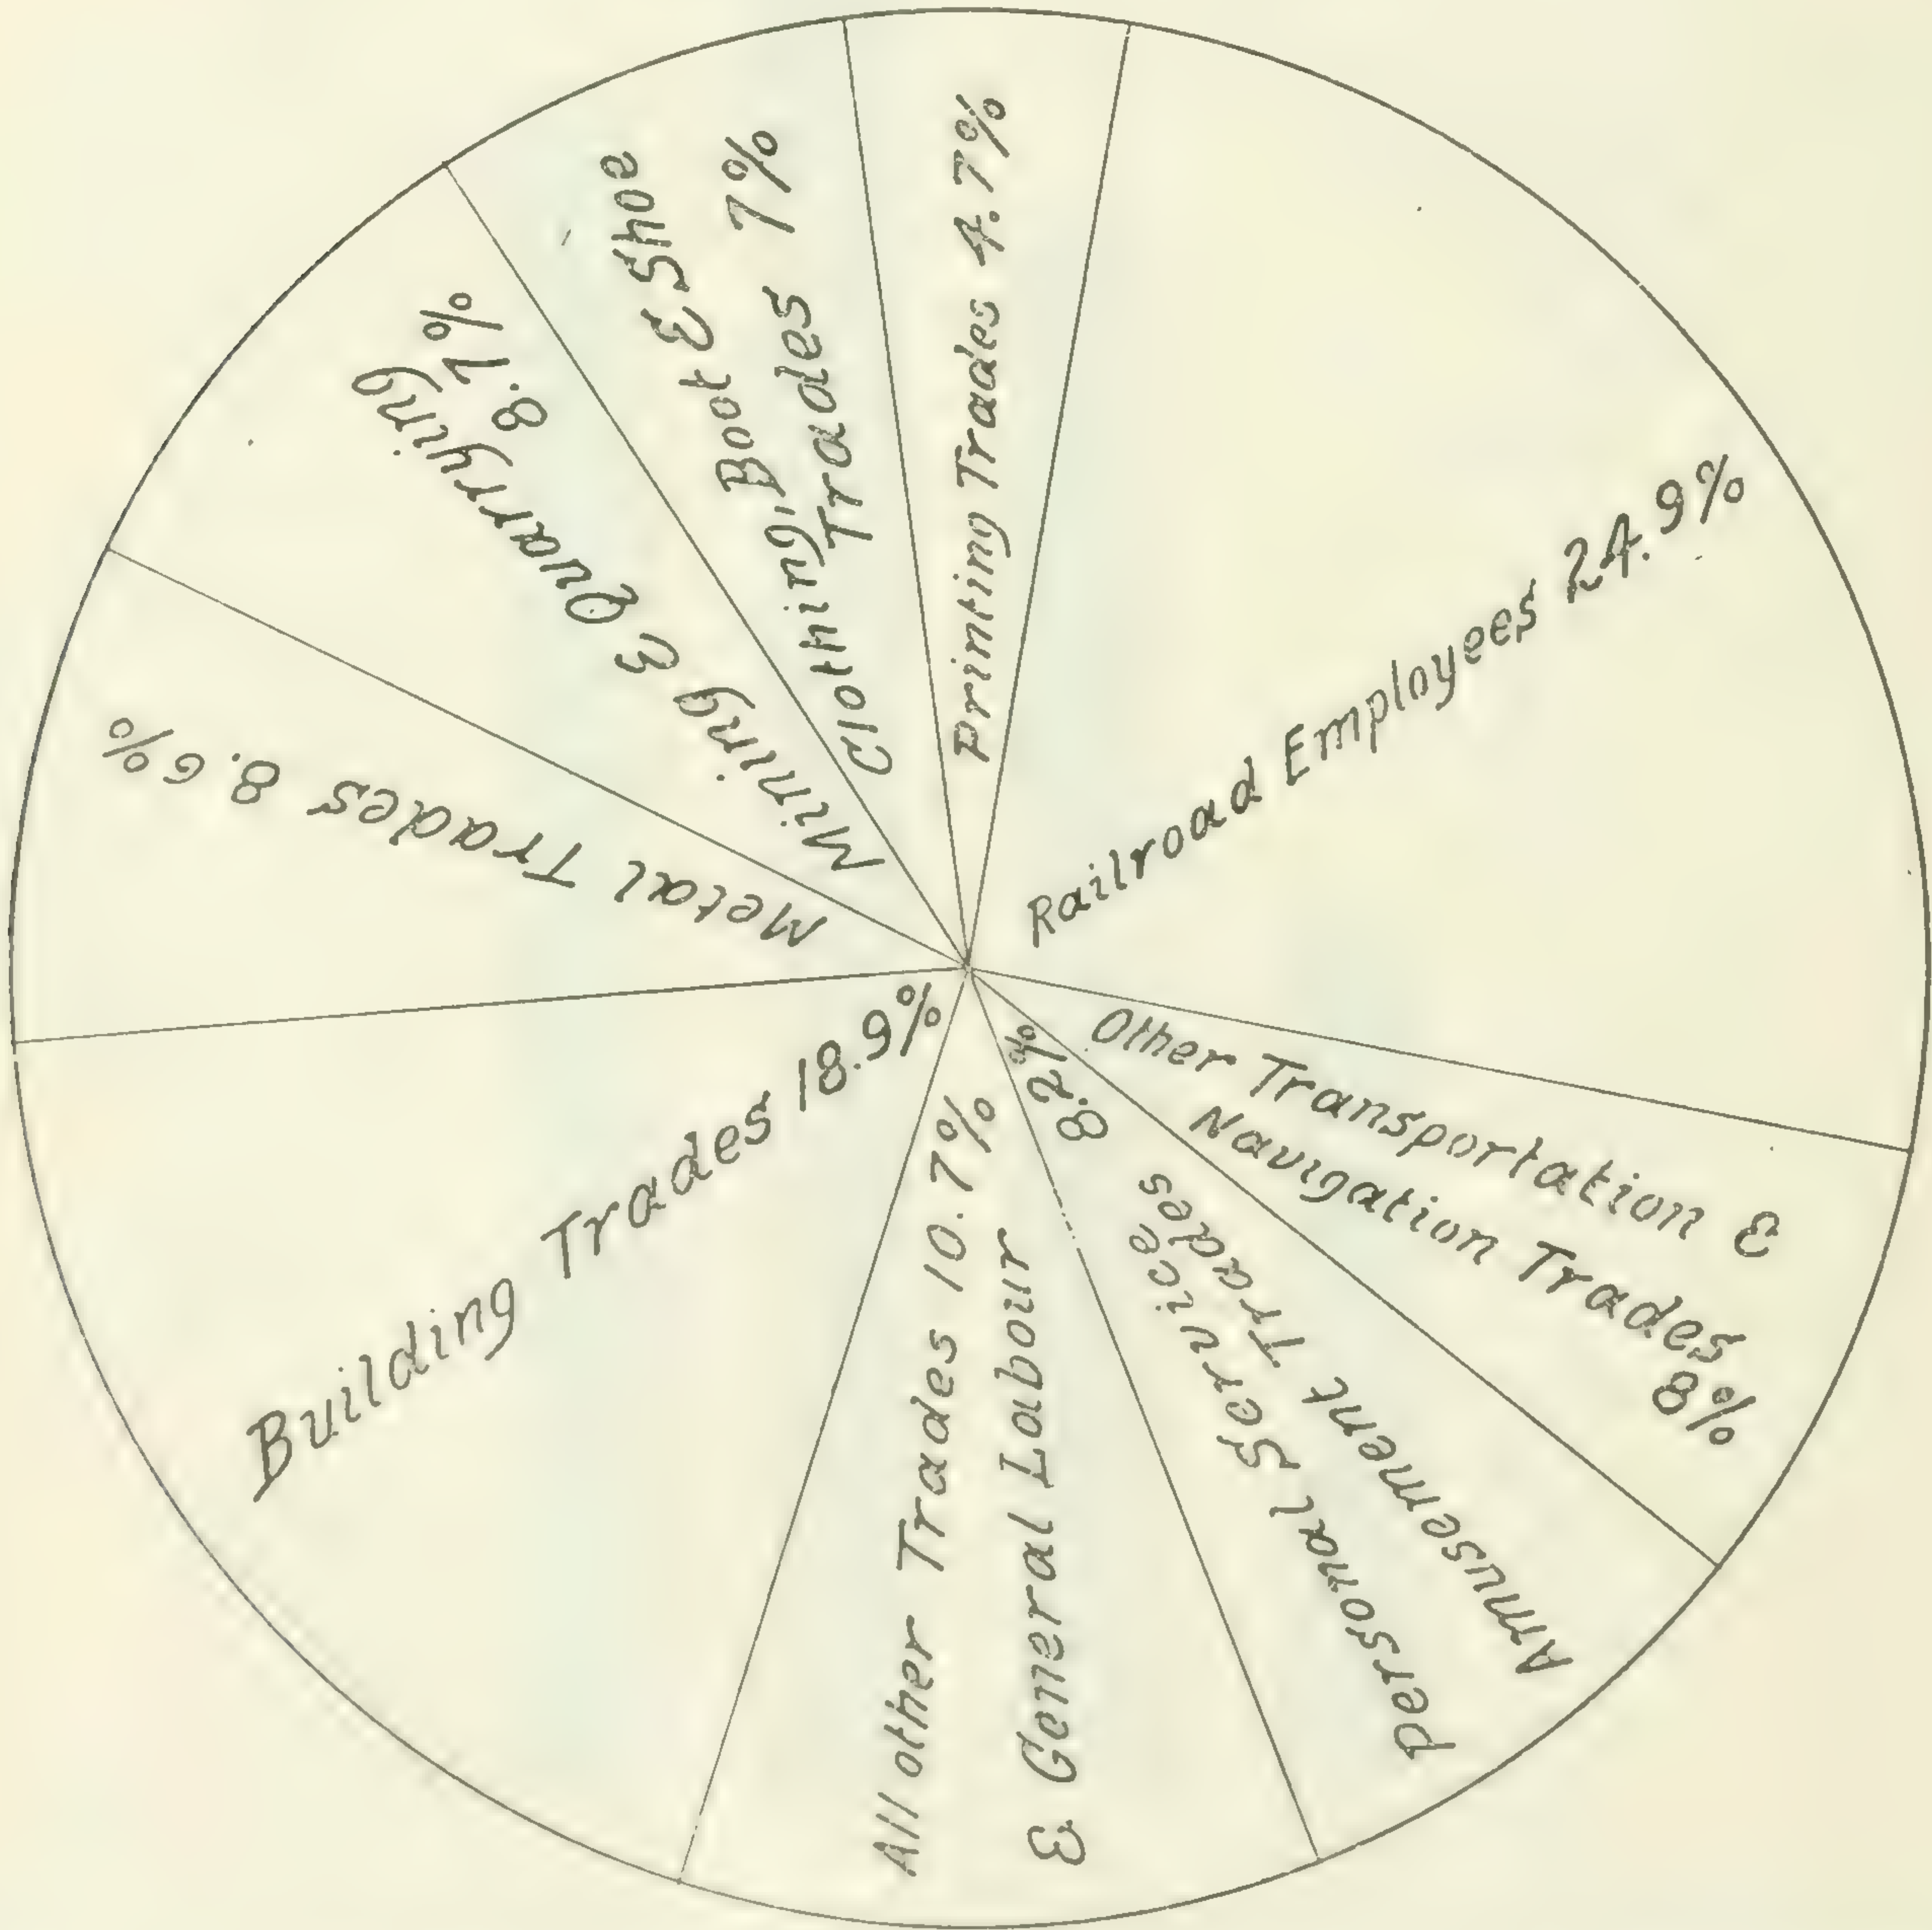 Printing Trades 4.7%
Railroad Employees 24.9%
Other Transportation &
Navigation Trades
8%
Personal Service
Amusement Trades
8.2%
All other Trades 10.7%
& General Labour
Building Trades 18.9%
Metal Trades 8.6%
Mining & Quarrying
8.7%
Clothing, Boot & Shoe
Trades 7%